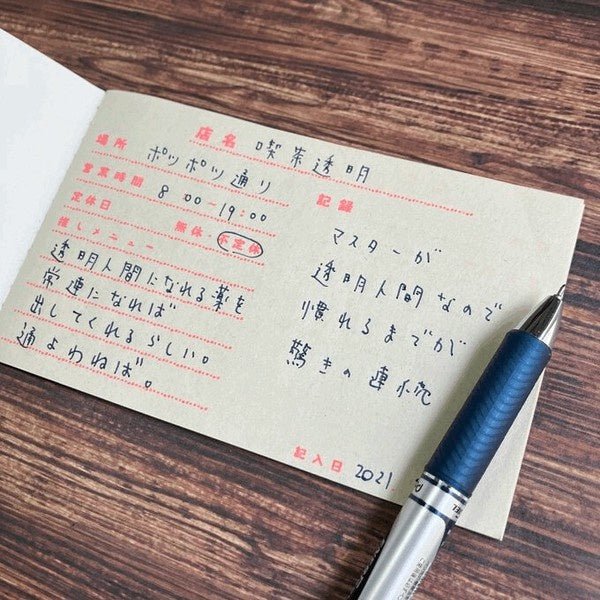 店名 喫茶透明
場所 ポツポツ通り
営業時間 8:00〜19:00
定休日 無休 不定休
推しメニュー
透明人間になれる薬を
常連になれば
出してくれるらしい。
通よわねば。
記録
マスターが
透明人間なので
慣れるまでが
驚きの連続
記入日 2021